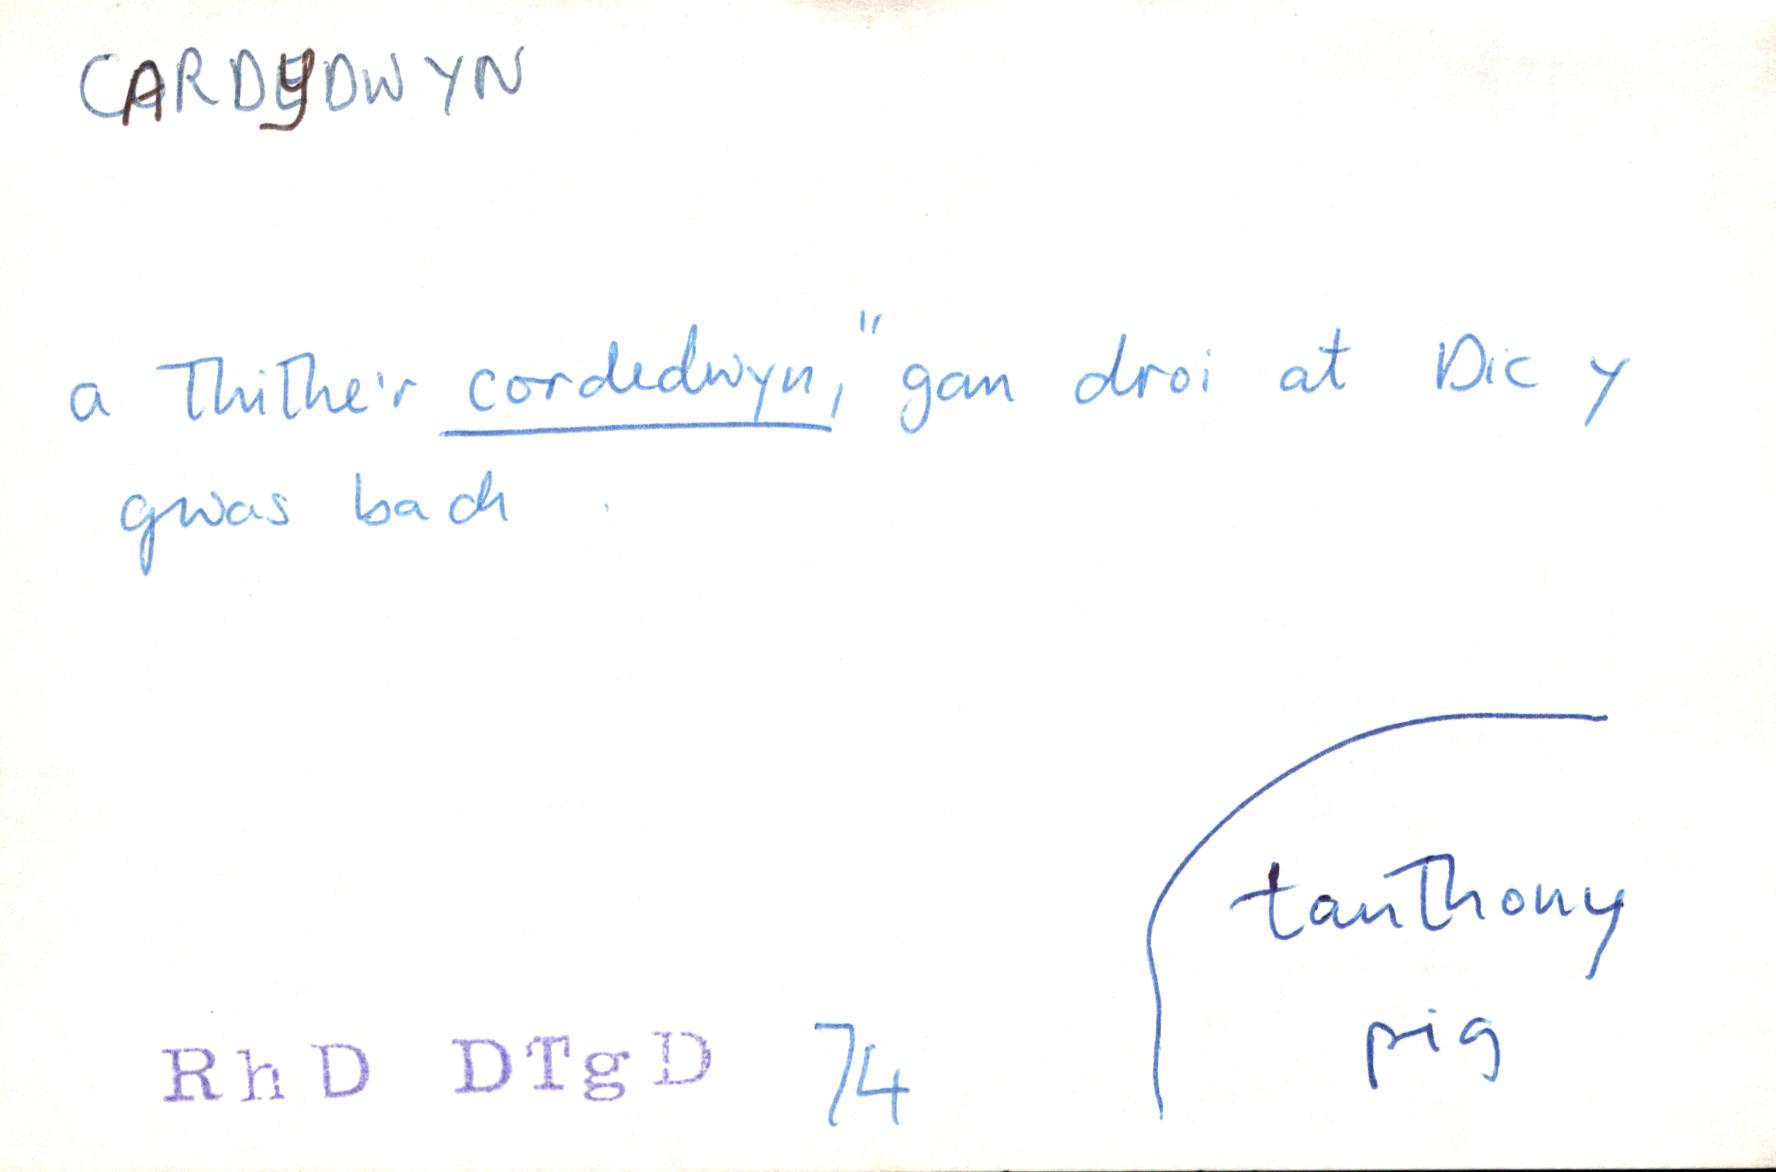 CARDYDWYN
a Thithe'r cordedwyn," gan droi at Dic y
gwas bach.
tanthony
pig
RhD DTgD 74